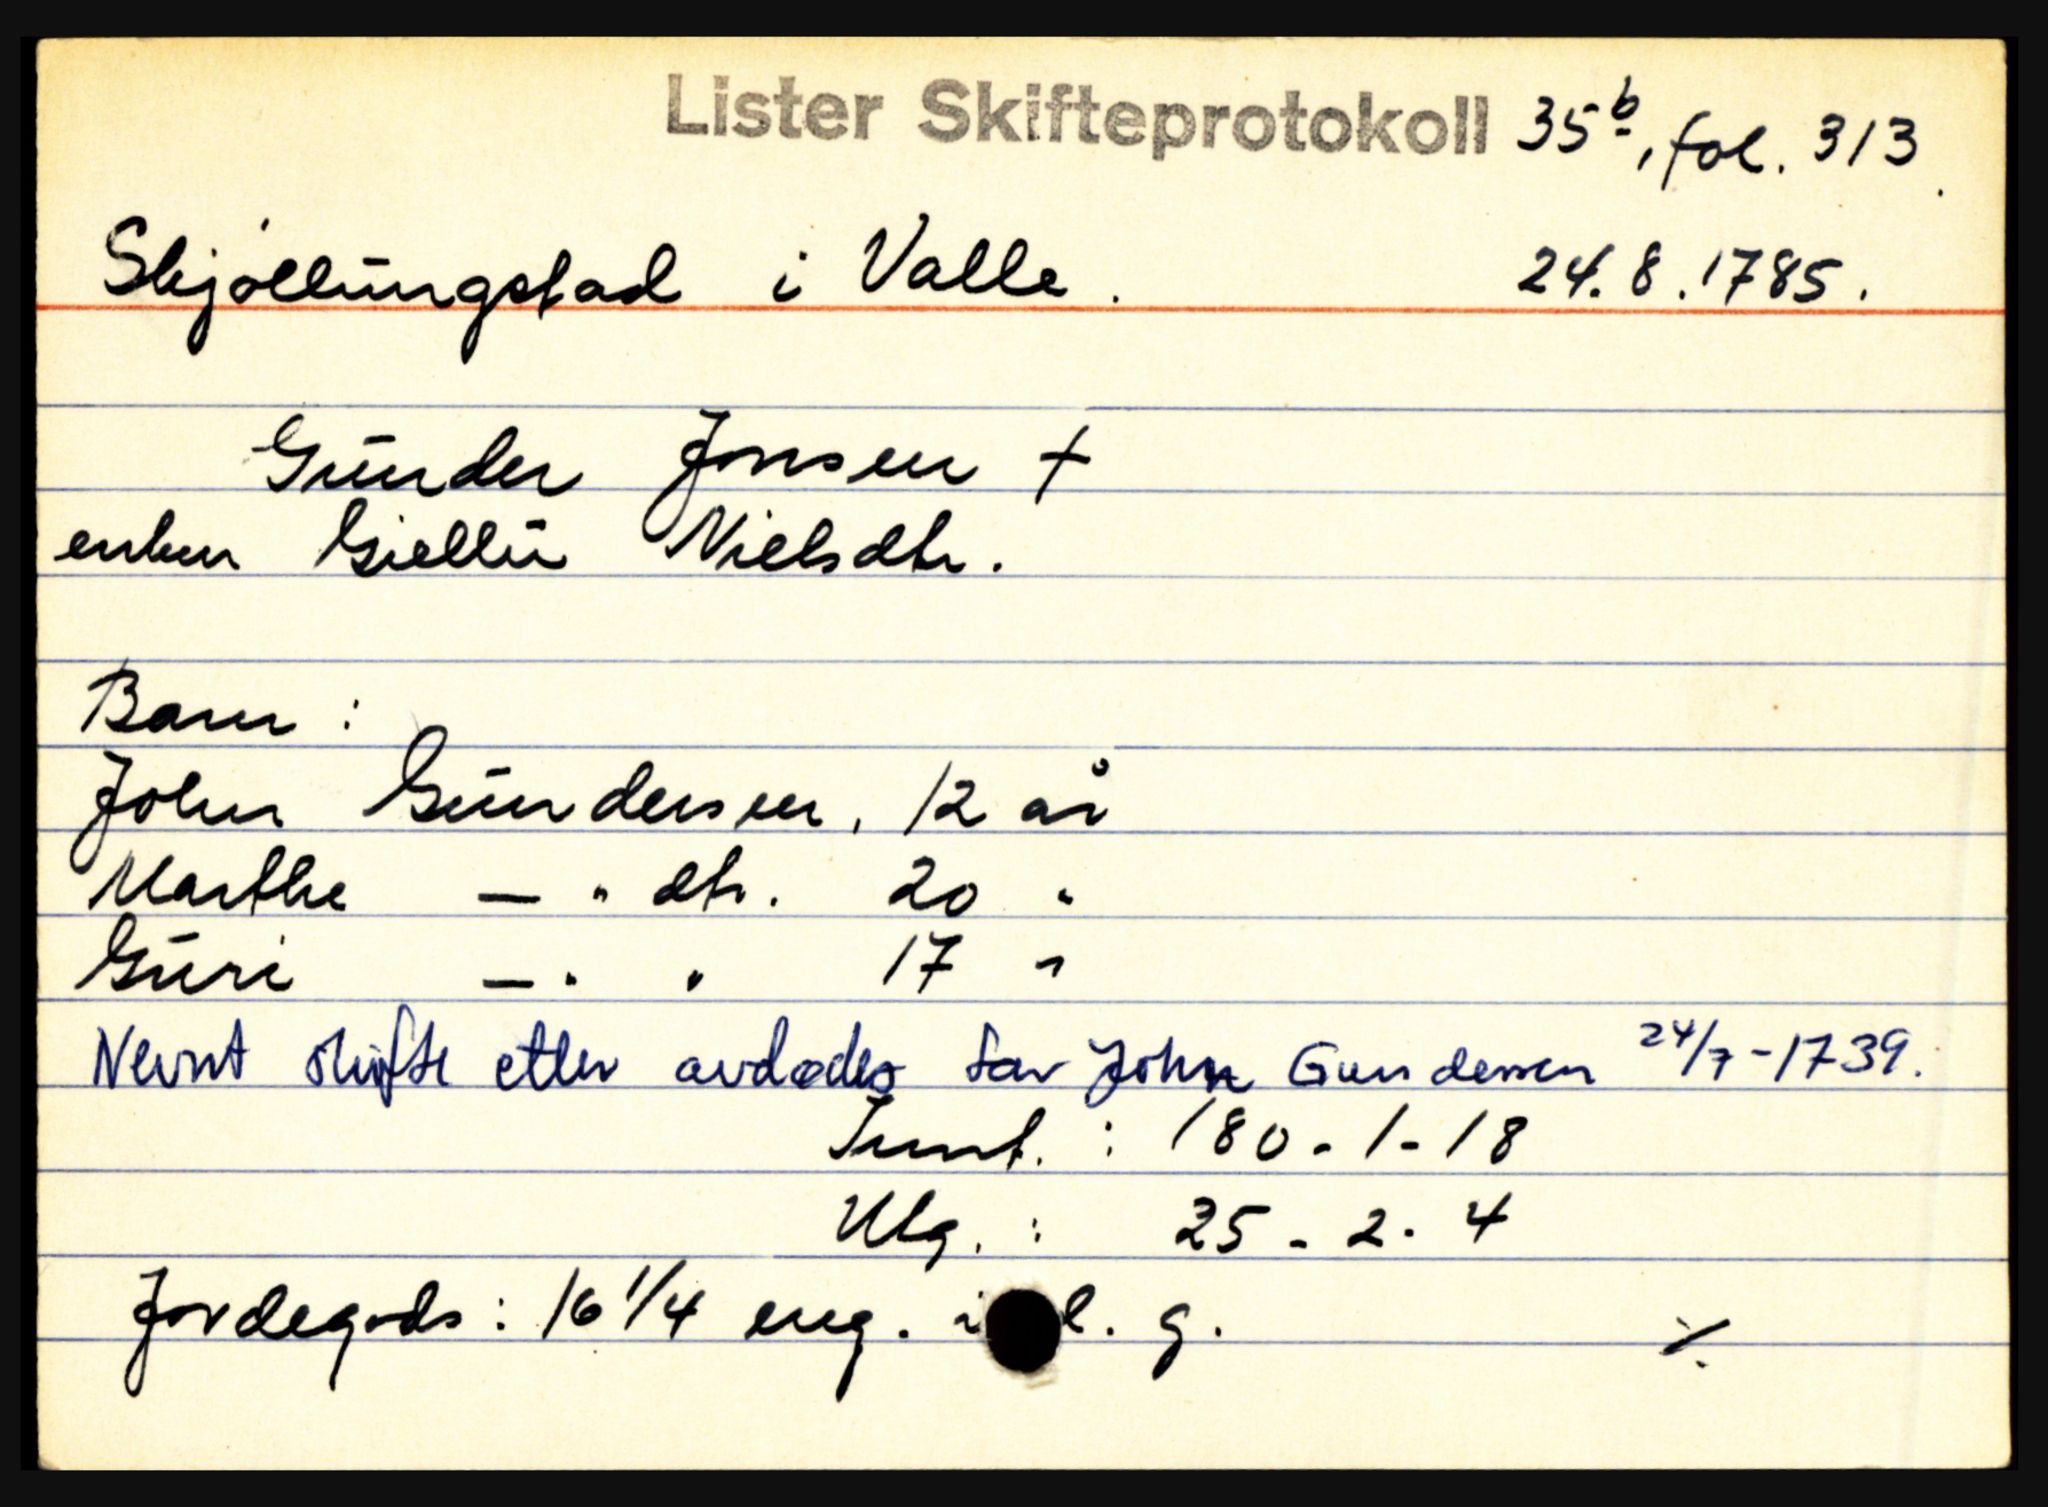 Lister Skifteprotokoll 35b, fol. 313.
Skjøllungstad i Valle. 24.8.1785.
Gunder Jonsen +
enken Giellu Nielsdtr.
Barn:
John Gundersen, 12 år
Marthe — " dtr. 20 "
Guri — " " 17 "
Nevnt skifte etter avdødes far John Gundersen 24/7-1739.
Innt.: 180-1-18
Utg.: 25-2-4
Jordegods: 16 1/4 eng. i l. g. ⁒